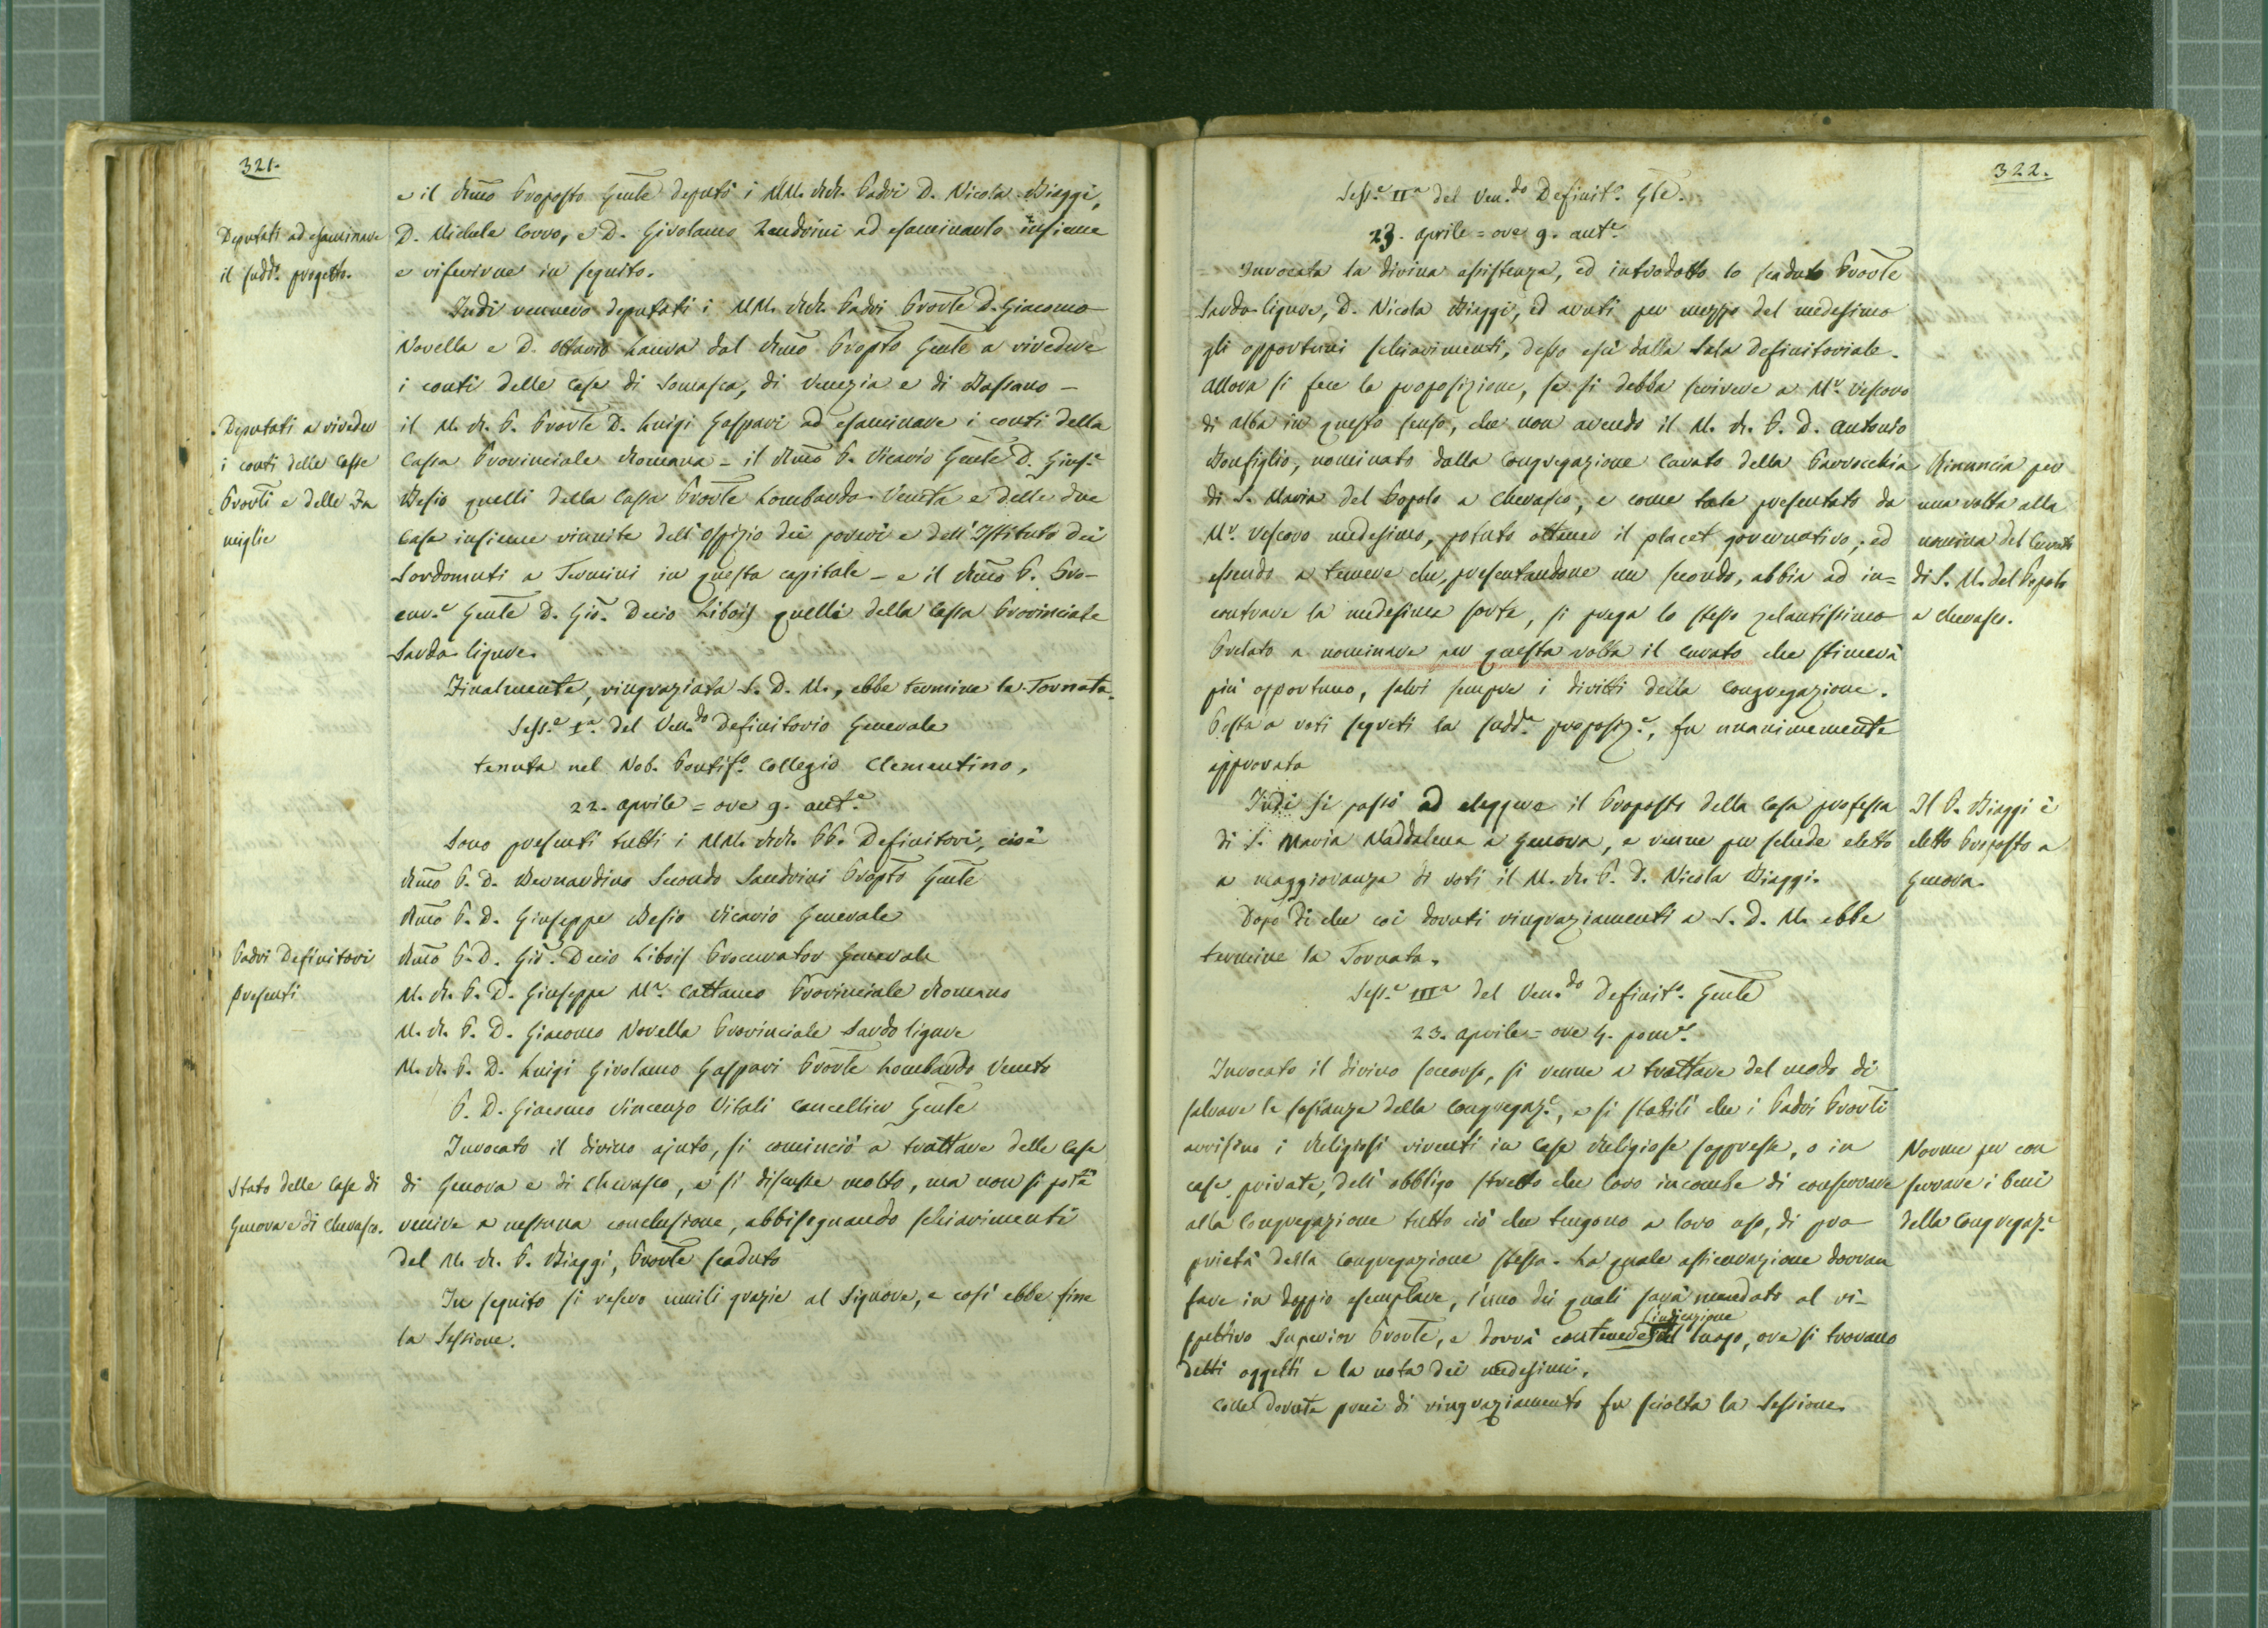 321.
e il Rmo Proposto Gnle deputò i MM. RR. Padri D. Nicola Biaggi,
Deputati ad esaminare
il sudd.o progetto.
D. Michele Corvo, e D. Girolamo Zendrini ad esaminarlo insieme
e riferirne in seguito.
Indi vennero deputati i MM. RR. Padri Provle D. Giacomo
Novella e D. Ottavio Lanva dal Rmo Propto Gnle a rivedere
i conti delle Case di Somasca, di Venezia e di Bassano –
Deputati a riveder
i conti delle Casse
Provli e delle Fa
miglie
il M. R. P. Provle D. Luigi Gaspari ad esaminare i conti della
Cassa Provinciale Romana – il Rmo P. Vicario Gnle D. Gius.e
Besio quelli della Cassa Provle Lombardo-Veneta e delle due
Case insieme riunite dell'Ospizio dei poveri e dell'Istituto dei
Sordomuti a Termini in questa capitale – e il Rmo P. Pro-
cur.e Gnle D. Gio. Decio Libois quelli della Cassa Provinciale
Sardo-ligure.
Finalmente, ringraziata S. D. M., ebbe termine la Tornata.
Sess.e I.a del Ven.do Definitorio Generale
tenuta nel Nob. Pontif.o Collegio Clementino,
22. aprile = ore 9. ant.e
Sono presenti tutti i MM. RR. PP. Definitori, cioè
Rmo P. D. Bernardino Secondo Sandrini Propto Gnle
Rmo P. D. Giuseppe Besio Vicario Generale
Padri Definitori
presenti
Rmo P. D. Gio. Decio Libois Procurator Generale
M. R. P. D. Giuseppe M.a Cattaneo Provinciale Romano
M. R. P. D. Giacomo Novella Provinciale Sardo ligure
M. R. P. D. Luigi Girolamo Gaspari Provle Lombardo Veneto
P. D. Giacomo Vincenzo Vitali Cancellier Gnle
Invocato il divino ajuto, si cominciò a trattare delle Case
Stato delle Case di
Genova e di Cherasco.
di Genova e di Cherasco, e si discusse molto, ma non si potè
venire a nessuna conclusione, abbisognando schiarimenti
del M. R. P. Biaggi, Provle scaduto
In seguito si resero umili grazie al Signore, e così ebbe fine
la Sessione.
322.
Sess.e II.a del Ven.do Definit.o Gle.
23. aprile = ore 9. ant.e
Invocata la divina assistenza, ed introdotto lo scaduto Provle
Sardo-ligure, D. Nicola Biaggi, ed avuti per mezzo del medesimo
gli opportuni schiarimenti, desso escì dalla Sala definitoriale.
Allora si fece la proposizione, se si debba scrivere a M.r Vescovo
di Alba in questo senso, che non avendo il M. R. P. D. Antonio
Bonfiglio, nominato dalla Congregazione Curato della Parrocchia
di S. Maria del Popolo a Cherasco, e come tale presentato da
M.r Vescovo medesimo, potuto ottener il placet governativo; ed
essendo a temere che, presentandone un secondo, abbia ad in=
contrare la medesima sorte, si prega lo stesso zelantissimo
Prelato a nominare per questa volta il curato che stimerà
più opportuno, salvi sempre i diritti della Congregazione.
Rinuncia per
una volta alla
nomina del Curato
di S. M. del Popolo
a Cherasco.
Posta a voti segreti la sudd.a proposiz.e, fu unanimemente
approvata
Indi si passò ad eleggere il Proposto della Casa professa
di S. Maria Maddalena a Genova, e venne per schede eletto
a maggioranza di voti il M. R. P. D. Nicola Biaggi.
Il P. Biaggi è
eletto Proposto a
Genova.
Dopo di che coi dovuti ringraziamenti a S. D. M. ebbe
termine la Tornata.
Sess.e III.a del Ven.do Definit.o Gnle
23. aprile = ore 4. pom.e
Invocato il divino soccorso, si venne a trattare del modo di
salvare le sostanze della Congregaz.e, e si stabilì che i Padri Provli
avvisino i Religiosi viventi in Case Religiose soppresse, o in
case private, dell'obbligo stretto che loro incombe di conservare
alla Congregazione tutto ciò che tengono a loro uso, di pro
prietà della Congregazione stessa. La quale assicurazione dovran
fare in doppio esemplare, l'uno dei quali sarà mandato al ri-
spettivo Superior Provle, e dovrà contenere l'indicazione del luogo, ove si trovano
detti oggetti e la nota dei medesimi.
Norme per con
servare i beni
della Congregaz.e
Colle dovute preci di ringraziamento fu sciolta la Sessione.